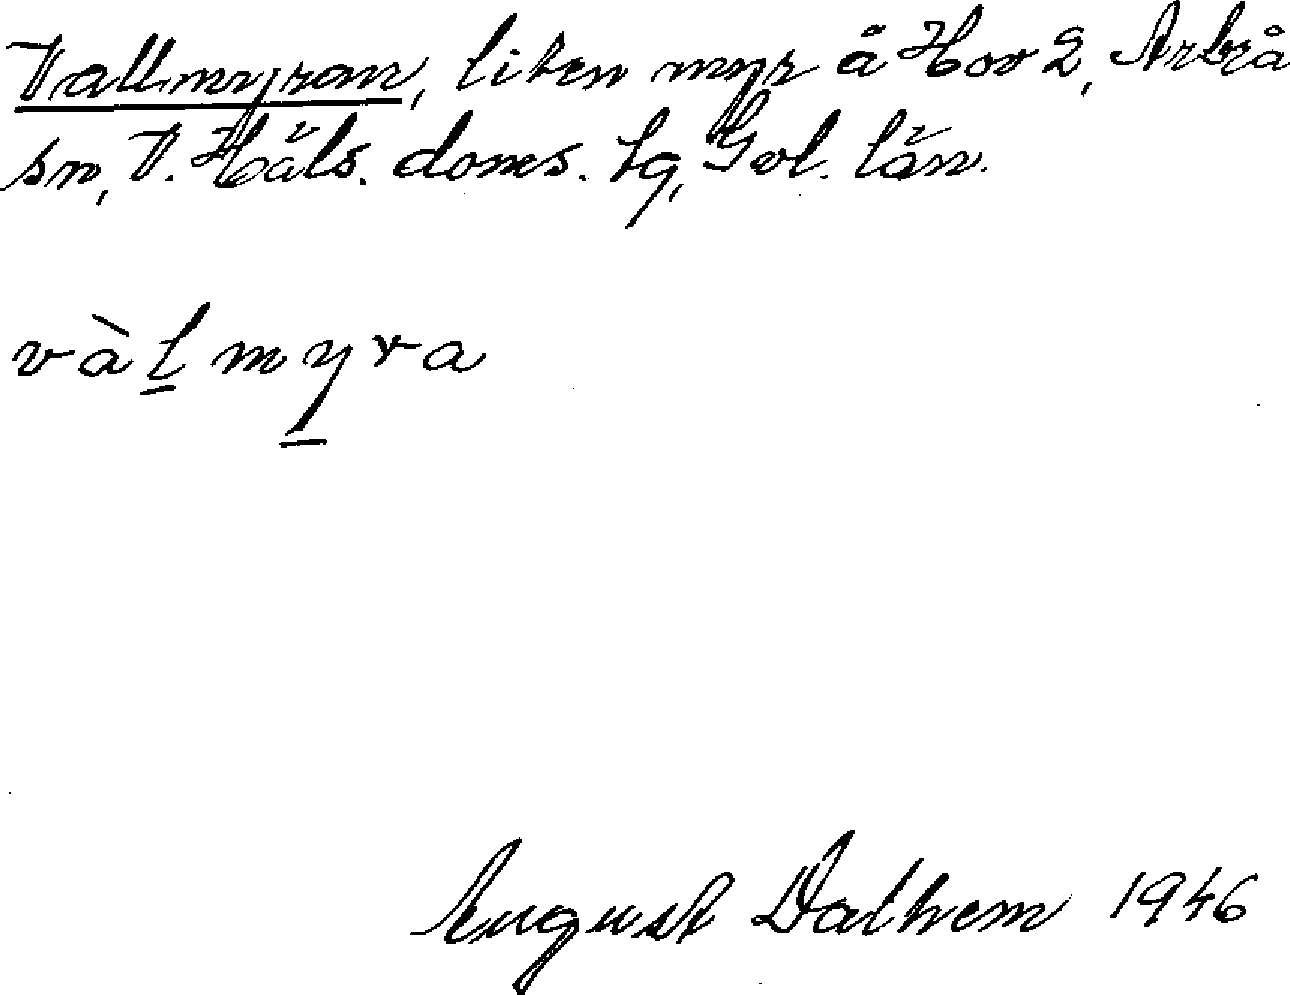 Vallmyran, liten myr å Hov 2, Arbrå
sn, V. Häls. doms. tg, Gvl. län.
vàlmyra
August Dalhem 1946